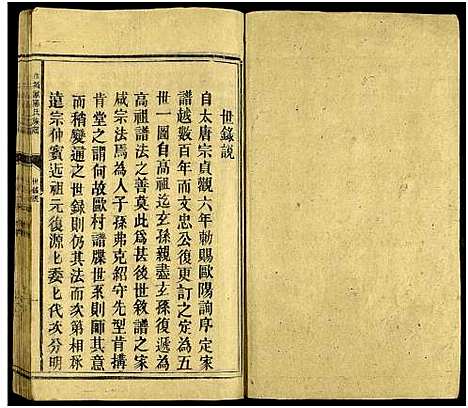 世錄說
自太唐宗貞觀六年勅賜歐陽詢序定家
譜越數百年而文忠公復更訂之定為五
世一圖自高祖迄玄孫親盡玄孫復遞為
高祖譜法之善莫此爲甚後世敘譜之家
咸宗法焉為人子孫弗克紹守先型肯搆
肯堂之謂何故歐村譜牒世系則師其意
而稍變通之世錄則仍其法而次第相承
遠宗仲賓近祖元復源上委七代次分明
世錄說